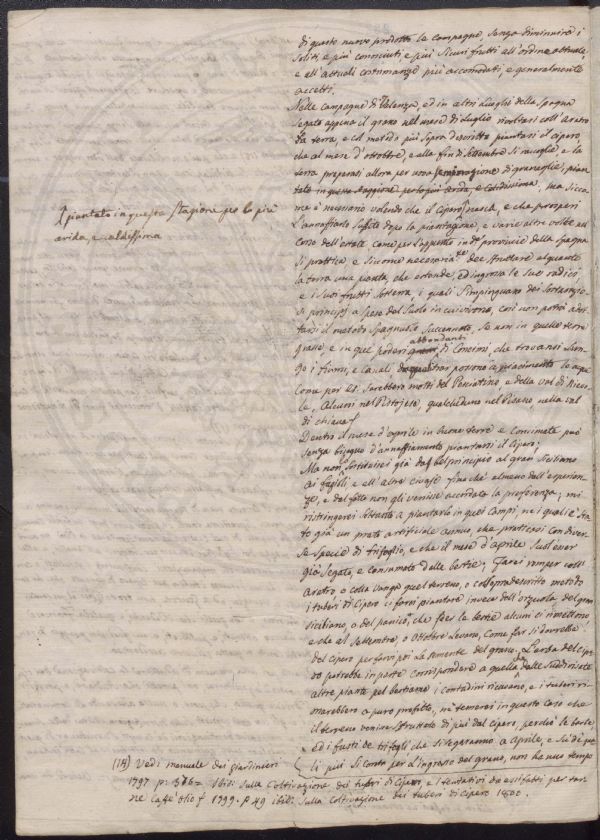 di questo nuovo prodotto la campagna, senza diminuire i
soliti e più conosciuti, e più sicuri frutti all'ordine attuale,
e all'attuali costumanze più accomodati, e generalmente
accetti.
Nelle campagne di Valenza, ed in altri luoghi della Spagna
segato appena il grano nel mese di Luglio coll'aratro
la terra, e col metodo più sopra descritto piantasi il cipero,
che al mese d'ottobre, e alla fin di Settembre si raccoglie e la
terra preparasi allora per una di granaglie;
ma sicco
me è necessario volendo che il cipero nasca, e che prosperi
l'annaffiarlo subito dopo la piantagione, e varie altre volte nel
corso dell'estate come per l'appunto in de provincie della Spagna
si prattica e siccome dee sfruttare alquanto
la terra una pianta, che estende, ed ingrossa le sue radici
e i suoi frutti sotterra, i quali
si principj a spese del suolo in cui vivono, così non potrà adot
tarsi il metodo spagnuolo succennato, se non in quelle terre
grasse, e in que' poderi abbondanti di concimi, che trovansi lun
go i fiumi, e canali possono a piacimento le acque
Come per Es. sarebbero molti del Pesciatino, e della val di Nievo
le, Alcuni nel Pistojese, qualcheduno nel Pisano, nella val
di chiana
Dentro il mese d'aprile in buone terre e concimate può
senza bisogno d'annaffiamento piantarsi il cipero;
Ma non già dal bel principio al gran siciliano
ai fagioli e all'altre civaje finchè almeno dall'esperien
ze, e dal fatto non gli venisse accordata la preferenza; mi
ristringerei soltanto a piantarlo in quei campi, ne i quali è sta
to già un prato artificiale annuo, che praticasi con diver
se specie di trifoglio, e che il mese d'aprile suol'esser
già segato, e consumato dalle bestie; farei romper coll'
aratro, o colla vanga quel terreno, e col sopradescritto metodo
i tuberi di cipero ci farei piantare invece dell'orzuola, del gran
siciliano, o del panico, che per le bestie alcuni ci rimettono
e che al settembre, o ottobre levano, come far si dovrebbe
del cipero per farvi poi la sementa del grano. L'erba del cipe
ro potrebbe in parte corrispondere a quella che dalle suddivisate
altre piante pel bestiame i contadini ricavano, e i tuberi ri
marebbero a puro profitto, nè temerei in questo caso che
il terreno venisse sfruttato di più dal cipero, perchè le barbe
ed i fusti de trifogli che si segaranno a Aprile, e su' de' qua
li più si conta per l'ingrasso del grano, non ha uno tempo
X piantato in questa stagione per lo più
arida, e caldissima
(14) Vedi manuale dei giardinieri
1797 p: 376= Ibid: sulla Coltivazione dei tubri di Cipero, e i tentativi da essi fatti per tar
ne caffè olio 1799. p 49 ibid: sulla coltivazione dei tuberi di cipero 1800.